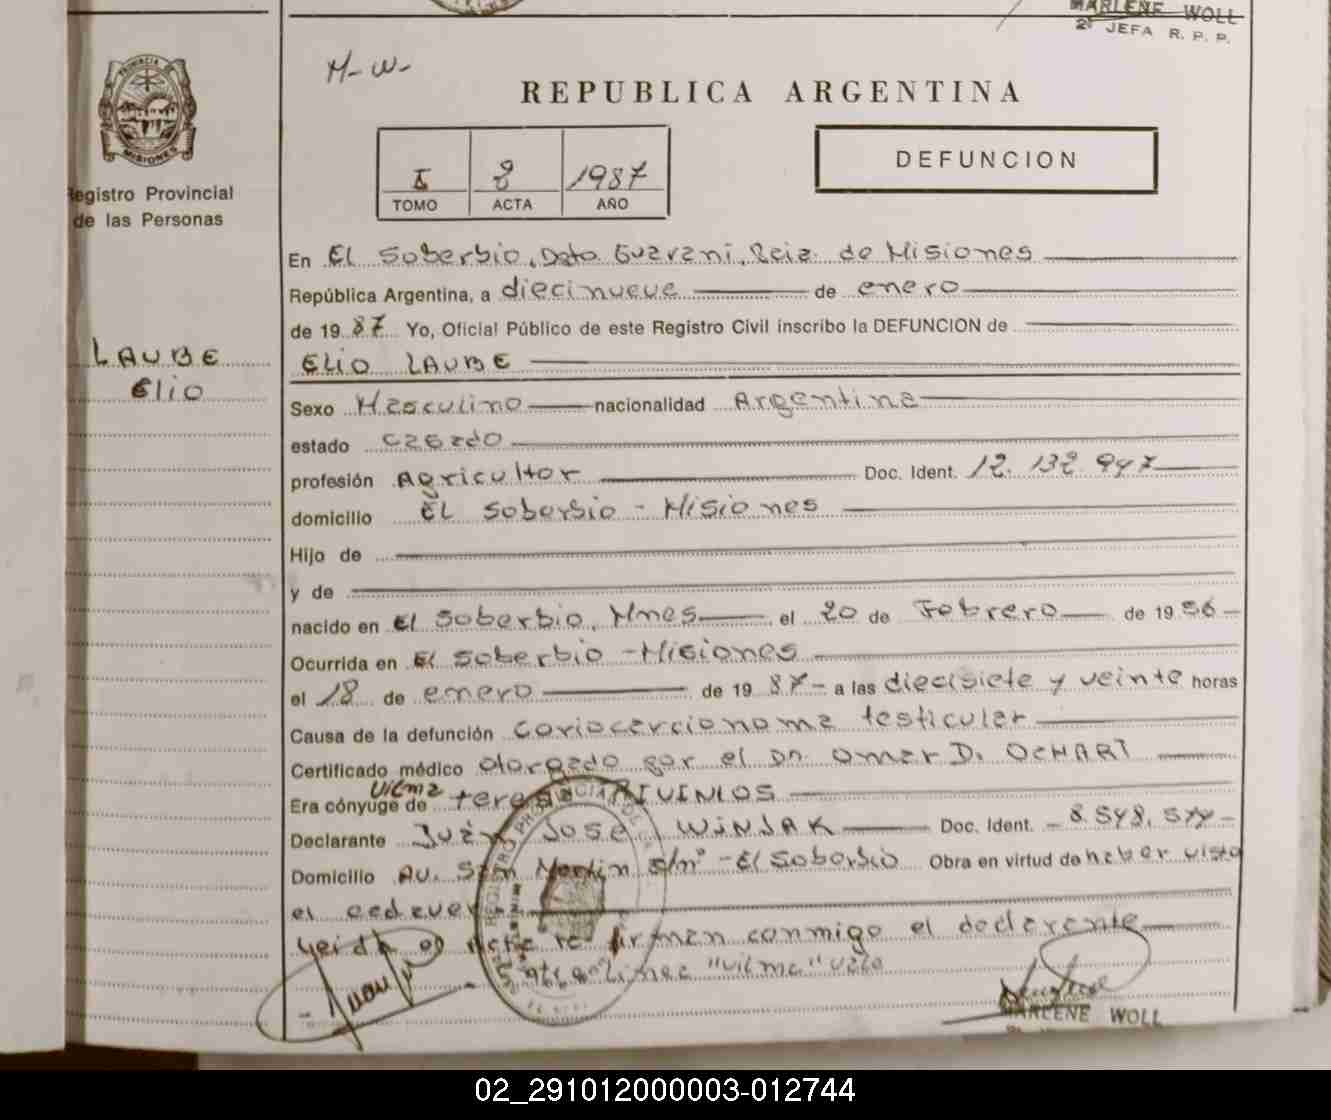 MARLENE WOLL
2ª JEFA R. P. P.
M-W-
PROVINCIA DE
MISIONES
REPUBLICA ARGENTINA
I 8 1987
TOMO ACTA AÑO
DEFUNCION
Registro Provincial
de las Personas
LAUBE
Elio
En El Soberbio, Dpto Guarani, Pcia. de Misiones
República Argentina, a diecinueve de enero
de 1987 Yo, Oficial Público de este Registro Civil inscribo la DEFUNCION de
ELIO LAUBE
Sexo Masculino nacionalidad Argentina
estado casado
profesión Agricultor Doc. Ident. 12.132.947
domicilio El Soberbio - Misiones
Hijo de
y de
nacido en El Soberbio, Mnes el 20 de Febrero de 1956 -
Ocurrida en El Soberbio - Misiones
el 18 de enero de 1987 - a las diecisiete y veinte horas
Causa de la defunción coriocarcionoma testicular
Certificado médico otorgado por el Dr. Omar D. OCHART
Vilma
Era cónyuge de teresa
Declarante Juan José WINJAK Doc. Ident. - 8.548.577 -
Domicilio Av. San Martin s/nº - El Soberbio Obra en virtud de haber visto
el cadaver
Leida el acta la firman conmigo el declarante
entre lineas "Vilma" Vale
MARLENE WOLL
02_291012000003-012744